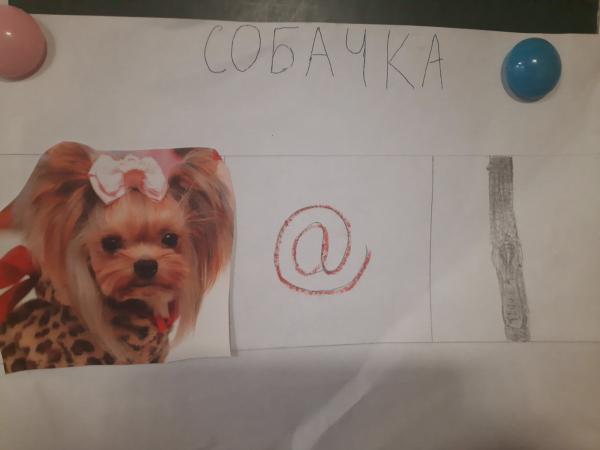 СОБАЧКА
@